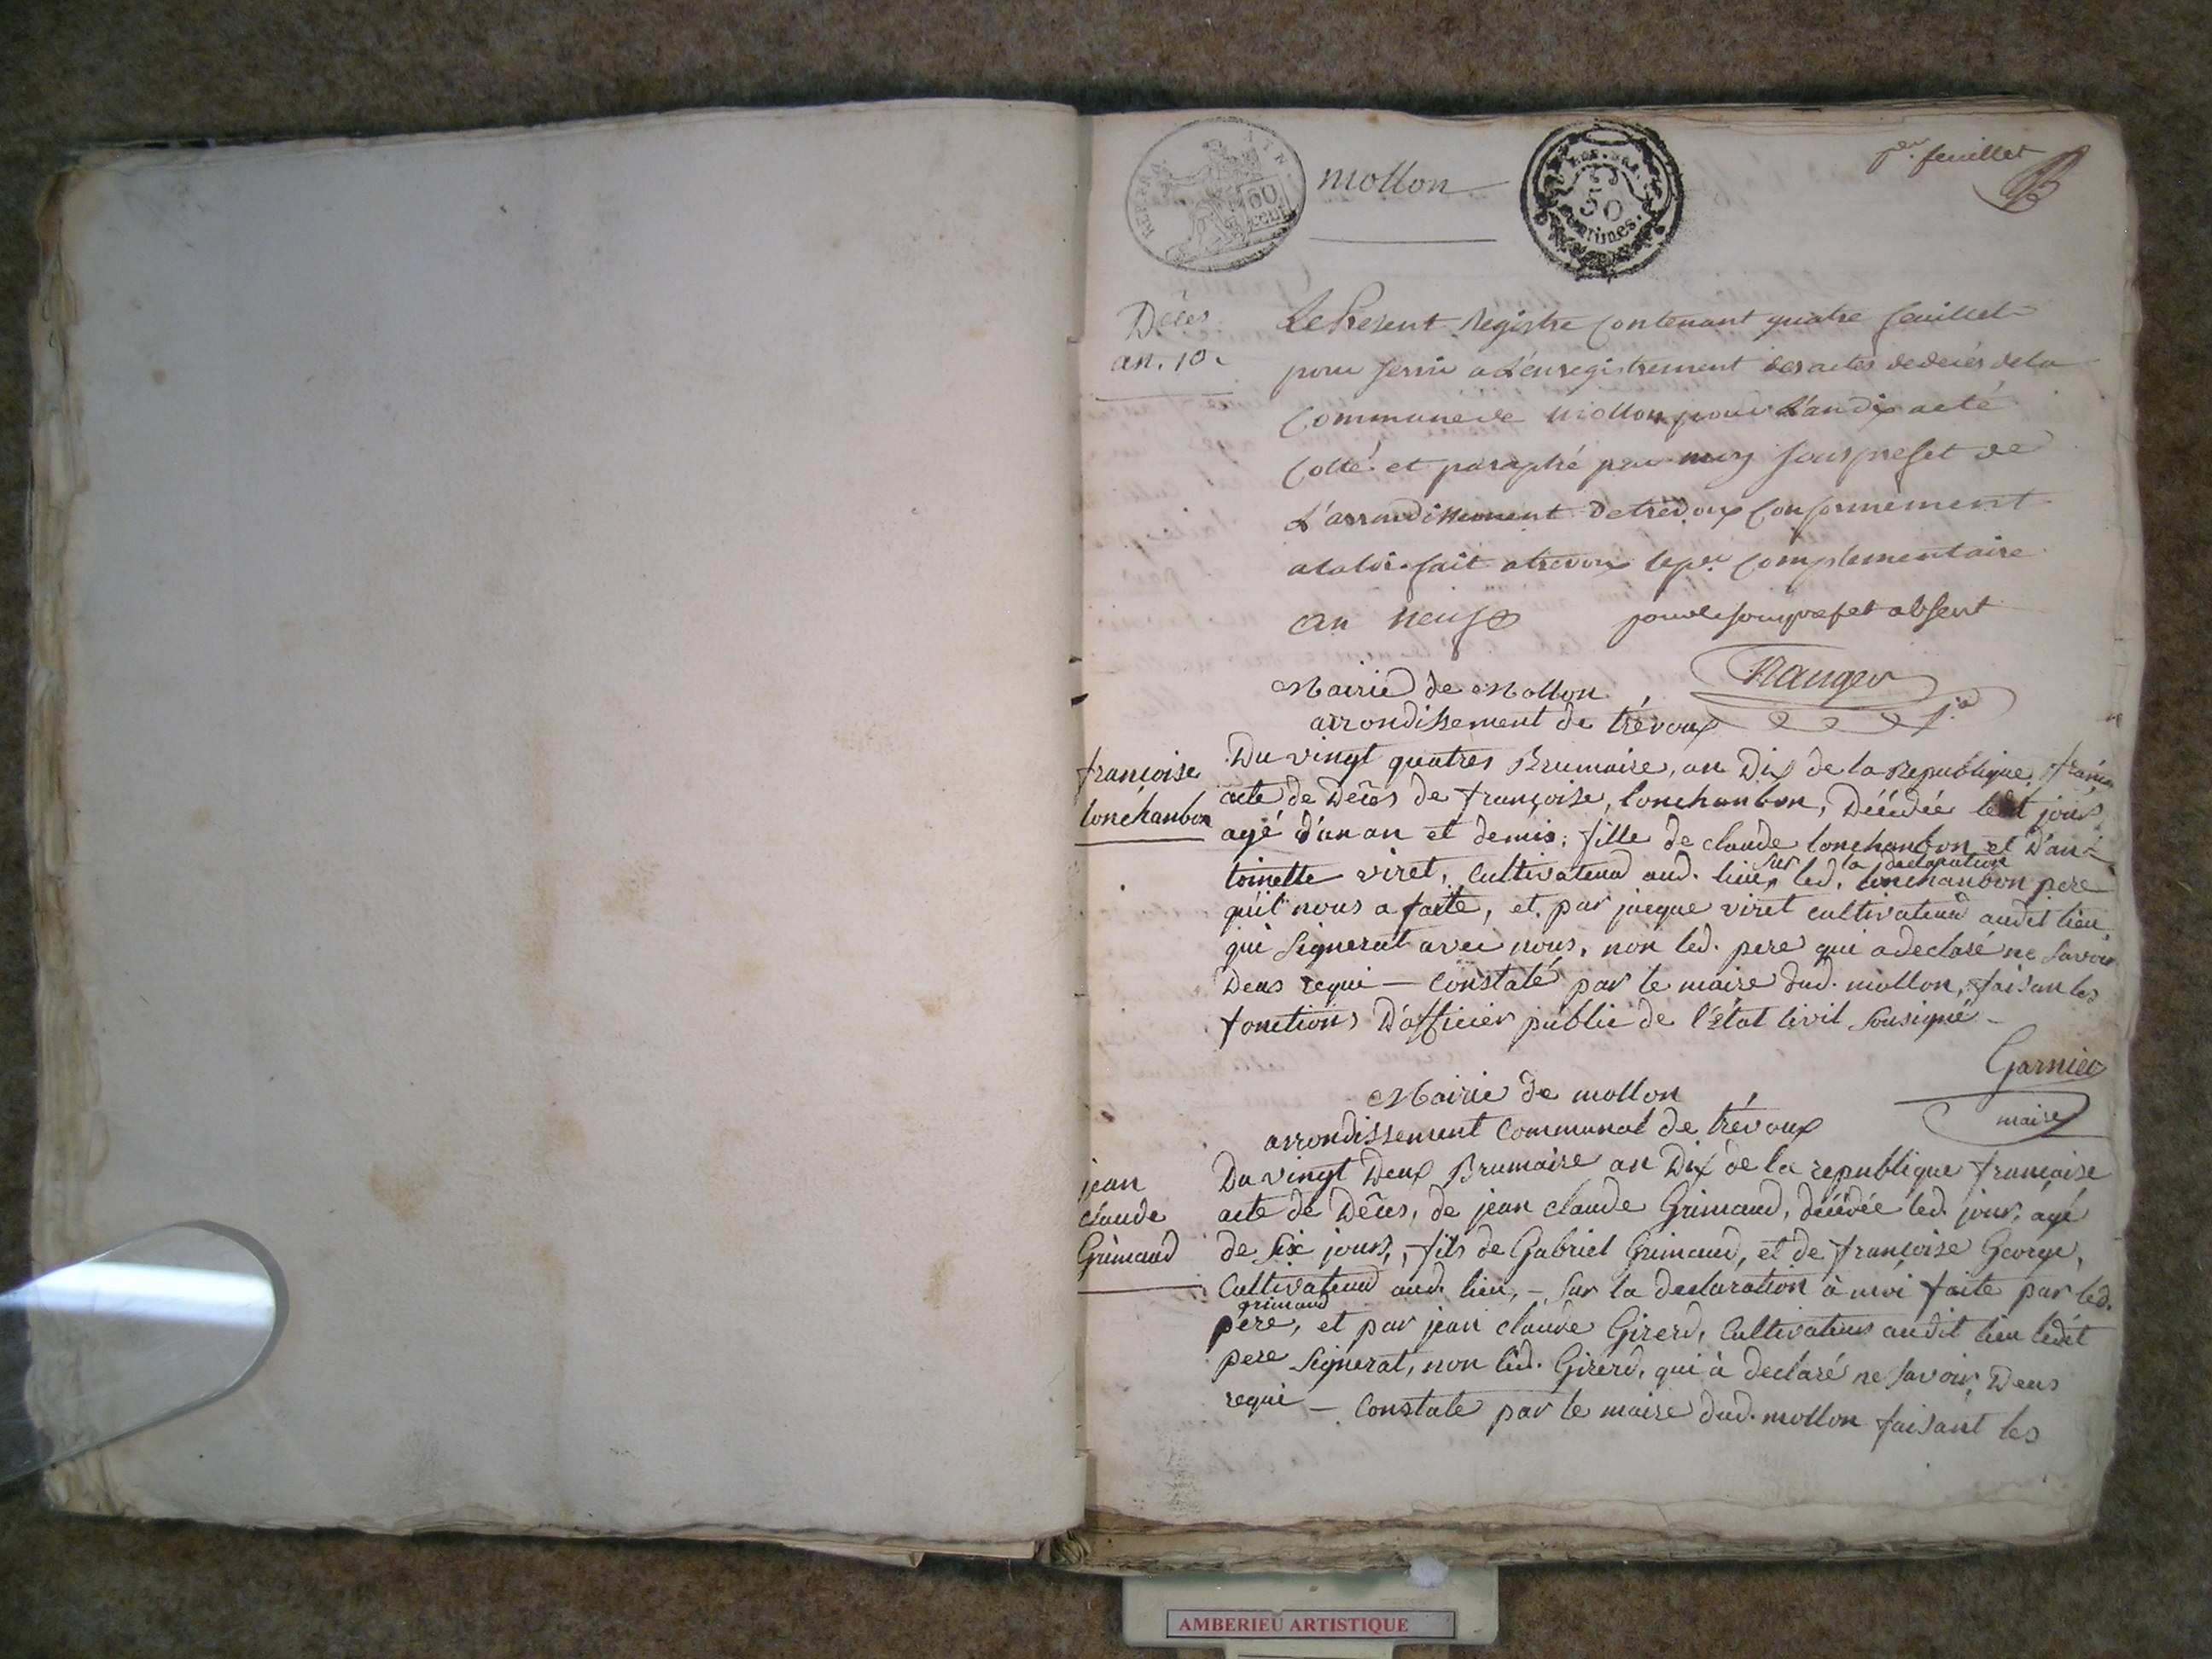 mollon
REP. FRA.
AIN.
50
cent
50
centimes.
1er. feuillet
Décès
an. 10.
Le Present Registre Contenant quatre feuillet
pour servir a L'enregistrement des actes de decés de la
Commune de Mollon pour L'an dix a eté
Cotté et paraphé par moy Sous prefet de
L'arrondissement de trevoux Conformement
a la loi. fait a trevoux le per Complementaire
an neuf pour le sous prefet absent
Mairie de Mollon
arrondissement de trévoux
françoise
lonchanbon
Du vingt quatres Brumaire, an Dix de la Republique,
acte de Décès de françoise, lonchanbon, Décédée ledt jours,
agé d'un an et demis; fille de claude lonchanbon et D'an-
toinette viret, Cultivateurd aud. lieu, sur la declaration led. lonchanbon pere
qu'il nous a faite, et. par jacque viret cultivateurd audit lieu,
qui Signerat avec nous, non led. pere qui a declaré ne Savoir
Deus requi — Constaté par le maire dud. mollon, faisan les
fonctions D'officier public de l'État Civil Sousigné —
Garnier
maire
Mairie de mollon
arrondissement Communal de trévoux
jean
claude
Grimaud
Du vingt Deux Brumaire an Dix de la republique française
acte de Décès, de jean claude Grimaud, décédée led. jour, agé
de Six jours, fils de Gabriel Grimaud, et de françoise George,
Cultivateurd aud. lieu, — Sur la declaration à moi faite par led.
grimaud
père, et par jean claude Girerd, Cultivateurs audit lieu ledit
pere Signerat, non led. Girerd, qui à declaré ne Savoir, Deus
requi — Constate par le maire dud. mollon faisant les
AMBERIEU ARTISTIQUE